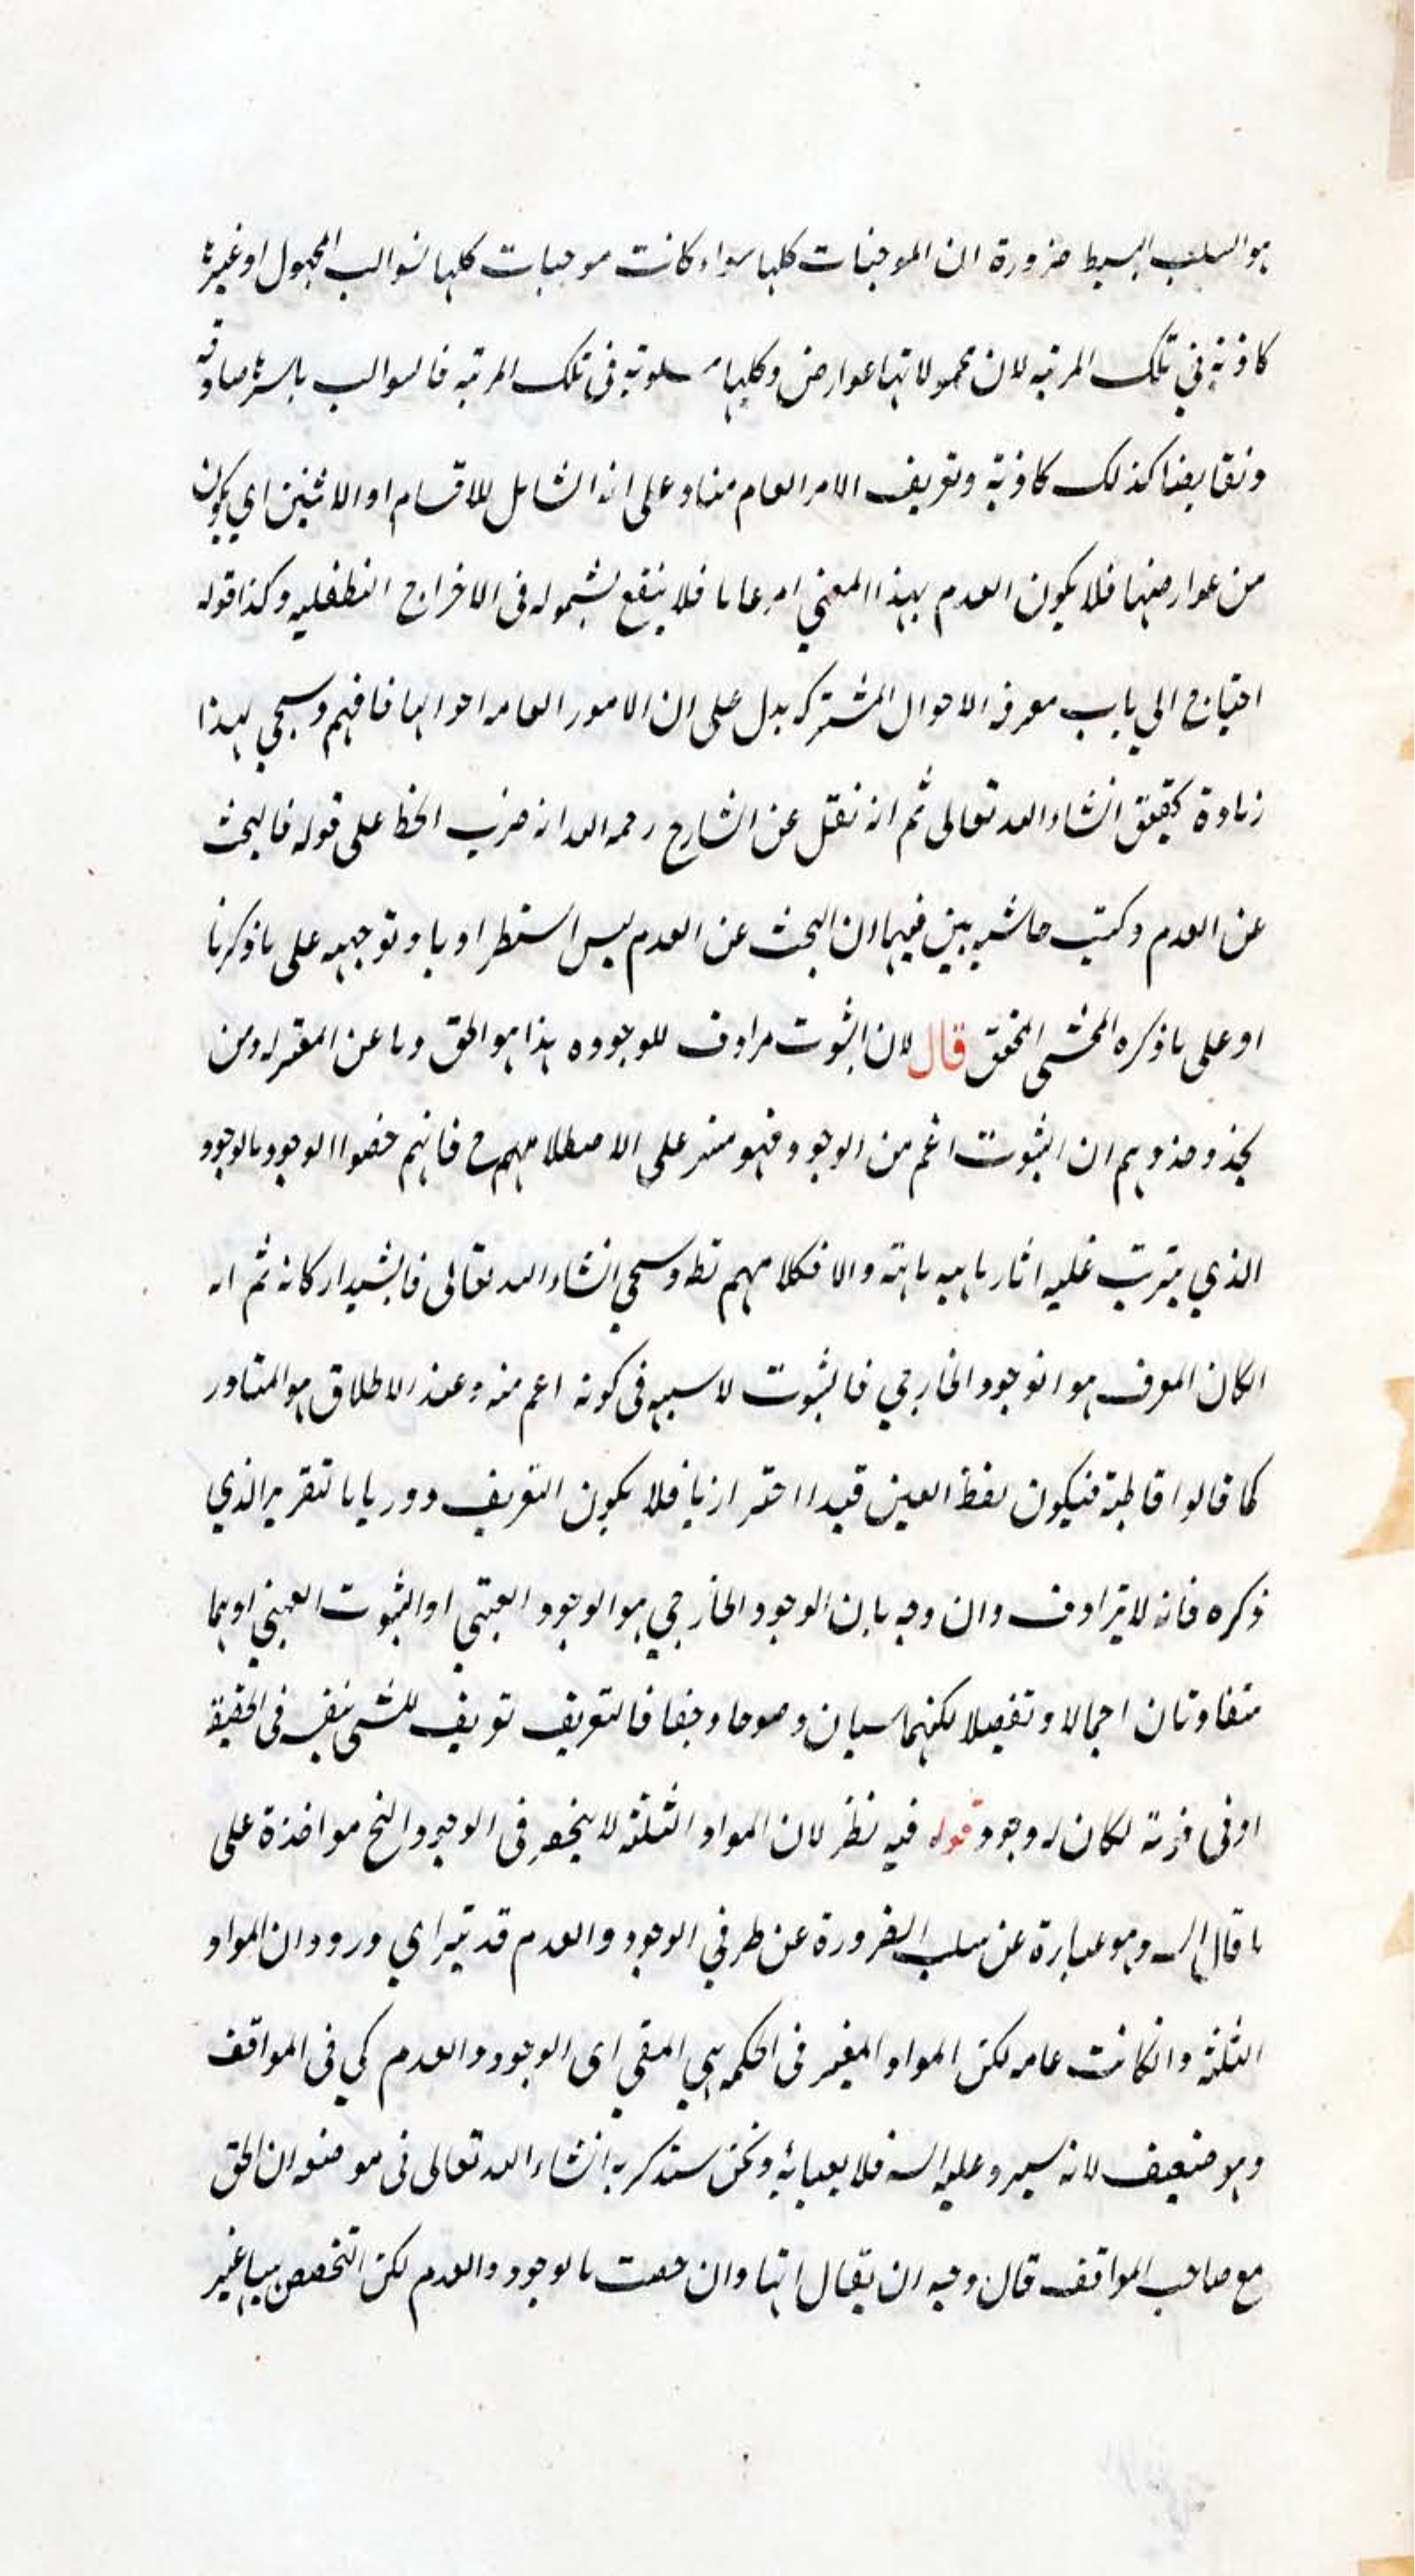 هو السلب البسيط ضرورة ان الموجبات كلها سواء كانت موجبات كلها سوالب المحمول او غيرها
كاذبة في تلك المرتبه لان محمولاتها عوارض وكلها مسلوبة في تلك المرتبه فالسوالب باسرها صادقه
ونقايضها كذلك كاذبة وتعريف الامر العام بناء على انه الشامل للاقسام او الاثنين اي يكون
من عوارضها فلا يكون العدم بهذا المعني امرا عاما فلا ينفع شموله في الاخراج التطفليه وكذا قوله
احتياج الي باب معرفة الاحوال المشتركه يدل على ان الامور العامه احوالها فافهم وسيجي لهذا
زيادة تحقيق انشاء الله تعالى ثم انه نقل عن الشارح رحمه الله انه ضرب الخط على قوله فالبحث
عن العدم وكتب حاشيه بين فيها ان البحث عن العدم ليس استطراديا وتوجيهه على ما ذكرنا
او على ما ذكره المحشي المحقق قال لان الثبوت مرادف للوجود ه هذا هو الحق وما عن المعتزله ومن
يحذو حذوهم ان الثبوت اعم من الوجود فهو مبني على الاصطلاح منهم فانهم خصوا الوجود بالوجود
الذي يترتب عليه اثار ماهيه ماهية والا فكلامهم وسيجي انشاء الله تعالى فانه ثم انه
الكان المعرف هو الوجود الخارجي فالثبوت لا شبهه في كونه اعم منه وعند الاطلاق هو المتبادر
كما قالوا قاطبة فيكون لفظ العين قيدا احترازيا فلا يكون التعريف دوريا بالتقرير الذي
ذكره فانه لا يترادف وان وجه بان الوجود الخارجي هو الوجود العيني او الثبوت العيني او هما
متفاوتان اجمالا وتفصيلا لكنهما سيان وضوحا وخفا فالتعريف تعريف للشي بنفسه في الحقيقة
او في قوته لكان له وجود قوله فيه نظر لان المواد الثلثه لا ينحصر في الوجود الخ مواخذة على
ما قال وهو عبارة عن سلب الضرورة عن طرفي الوجود والعدم قد ورود ان المواد
الثلثه وانكانت عامه لكن المواد المعتبر في الحكمه هي اي الوجود والعدم كي في المواقف
وهو ضعيف لانه فلا يعبا به ونحن سنذكر به انشاء الله تعالى في موضعه ان الحق
مع صاحب المواقف قال وجه ان يقال انها وان خصت بالوجود والعدم لكن التخصيص بها غير